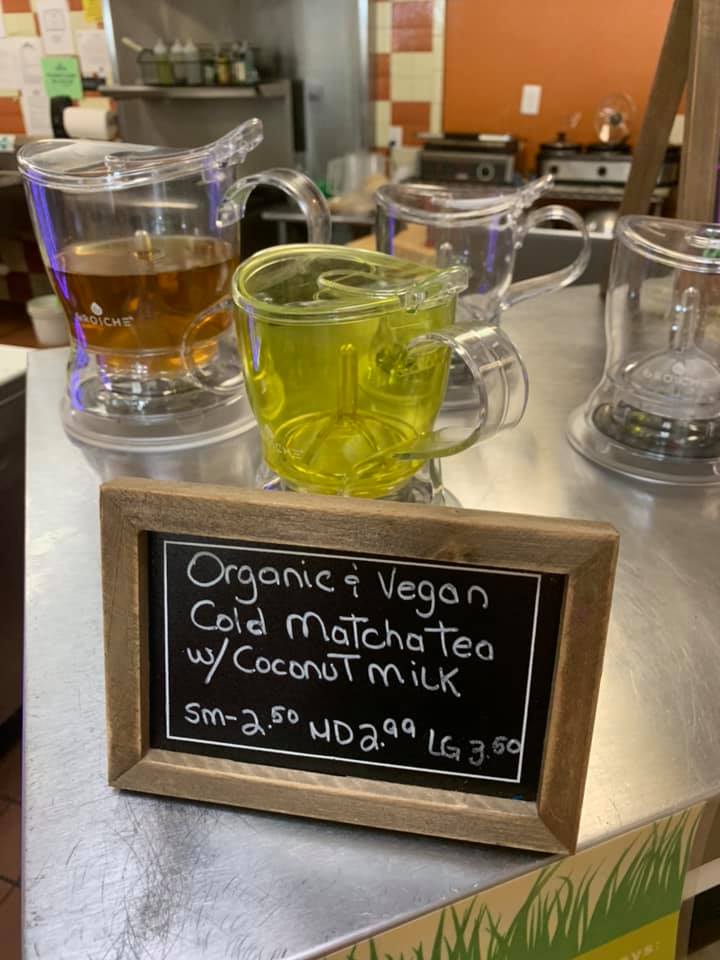 GROSCHE
Organic & Vegan
Cold Matcha Tea
w/ Coconut Milk
Sm-2.50 MD 2.99 LG 3.50